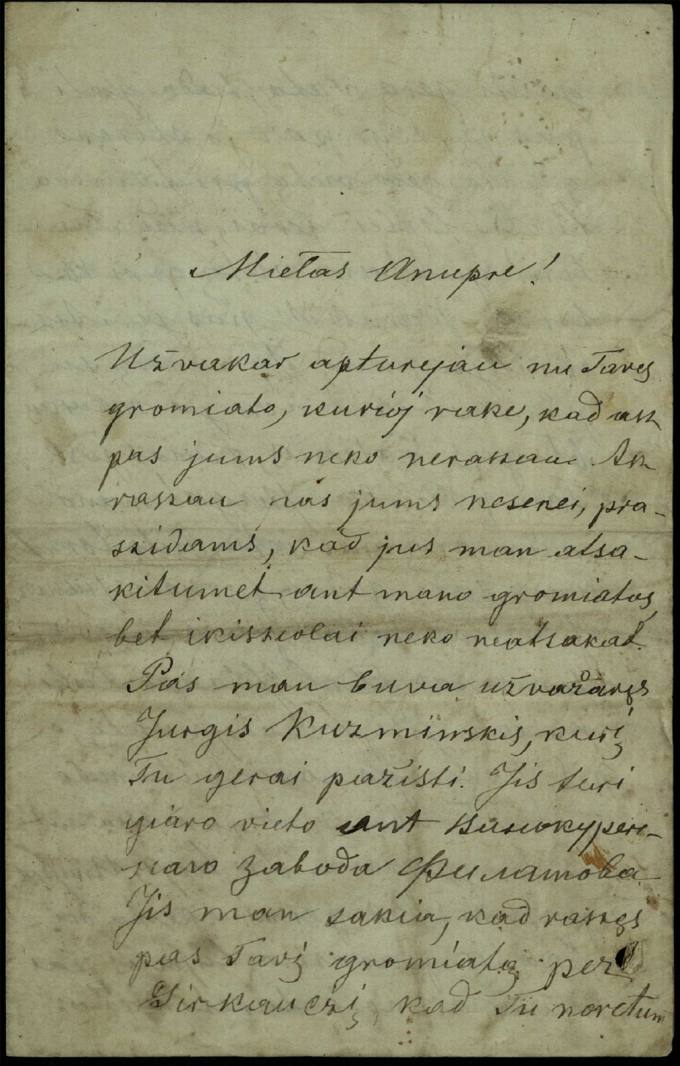 Mietas Anupre!
Užvakar apturejau nu Tavęs
gromiato, kurioj rake, kad asz
pas jums neko nerassau. Asz
rassau nas jums nesenei, pra-
szidams, kad jus man atsa-
kitumet ant mano gromiatos,
bet ikiszeolai neko neatsakat.
Pas man buva užvažaręs
Jurgis Kuzminskis, kurį
Tu gerai pažisti. Jis turi
giaro vieto ant
zaboda Филатова
Jis man sakia, kad raszęs
pas Tavį gromiatą per
Girkauczį, kad Tu noretum